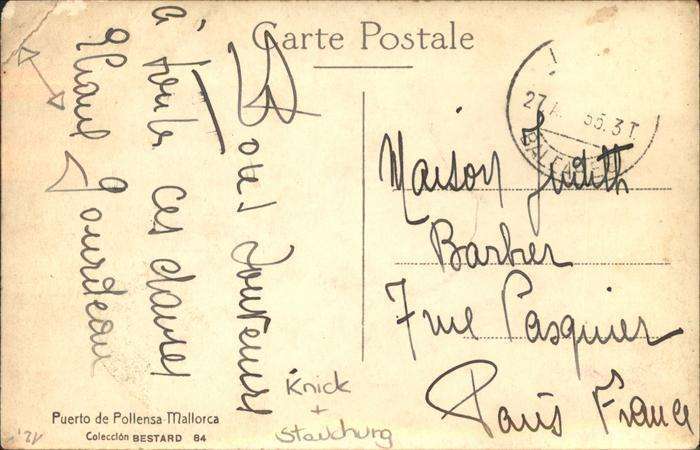 Carte Postale
Bons souvenirs
à toute ces dames
Jourdeau
27 A. 35.3T
BALEARES
Maison Judith
Barbier
7 rue Pasquier
Paris France
Knick
+
Stauchung
Puerto de Pollensa-Mallorca
Colección BESTARD 84